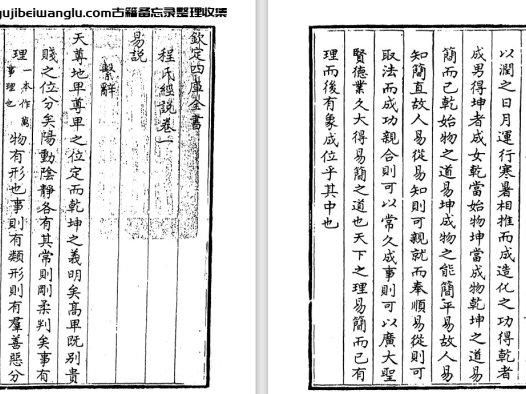 gujibeiwanglu.com古籍备忘录整理收集
欽定四庫全書
程氏經說卷一
易說
繫辭
天尊地卑尊卑之位定而乾坤之義明矣高卑既别貴
賤之位分矣陽動陰静各有其常則剛柔判矣事有
理一本作萬事理也物有形也事則有類形則有羣善惡分
以潤之日月運行寒暑相推而成造化之功得乾者
成男得坤者成女乾當始物坤當成物乾坤之道易
簡而已乾始物之道易坤成物之能簡平易故人易
知簡直故人易從易知則可親就而奉順易從則可
取法而成功親合則可以常久成事則可以廣大聖
賢德業久大得易簡之道也天下之理易簡而已有
理而後有象成位乎其中也